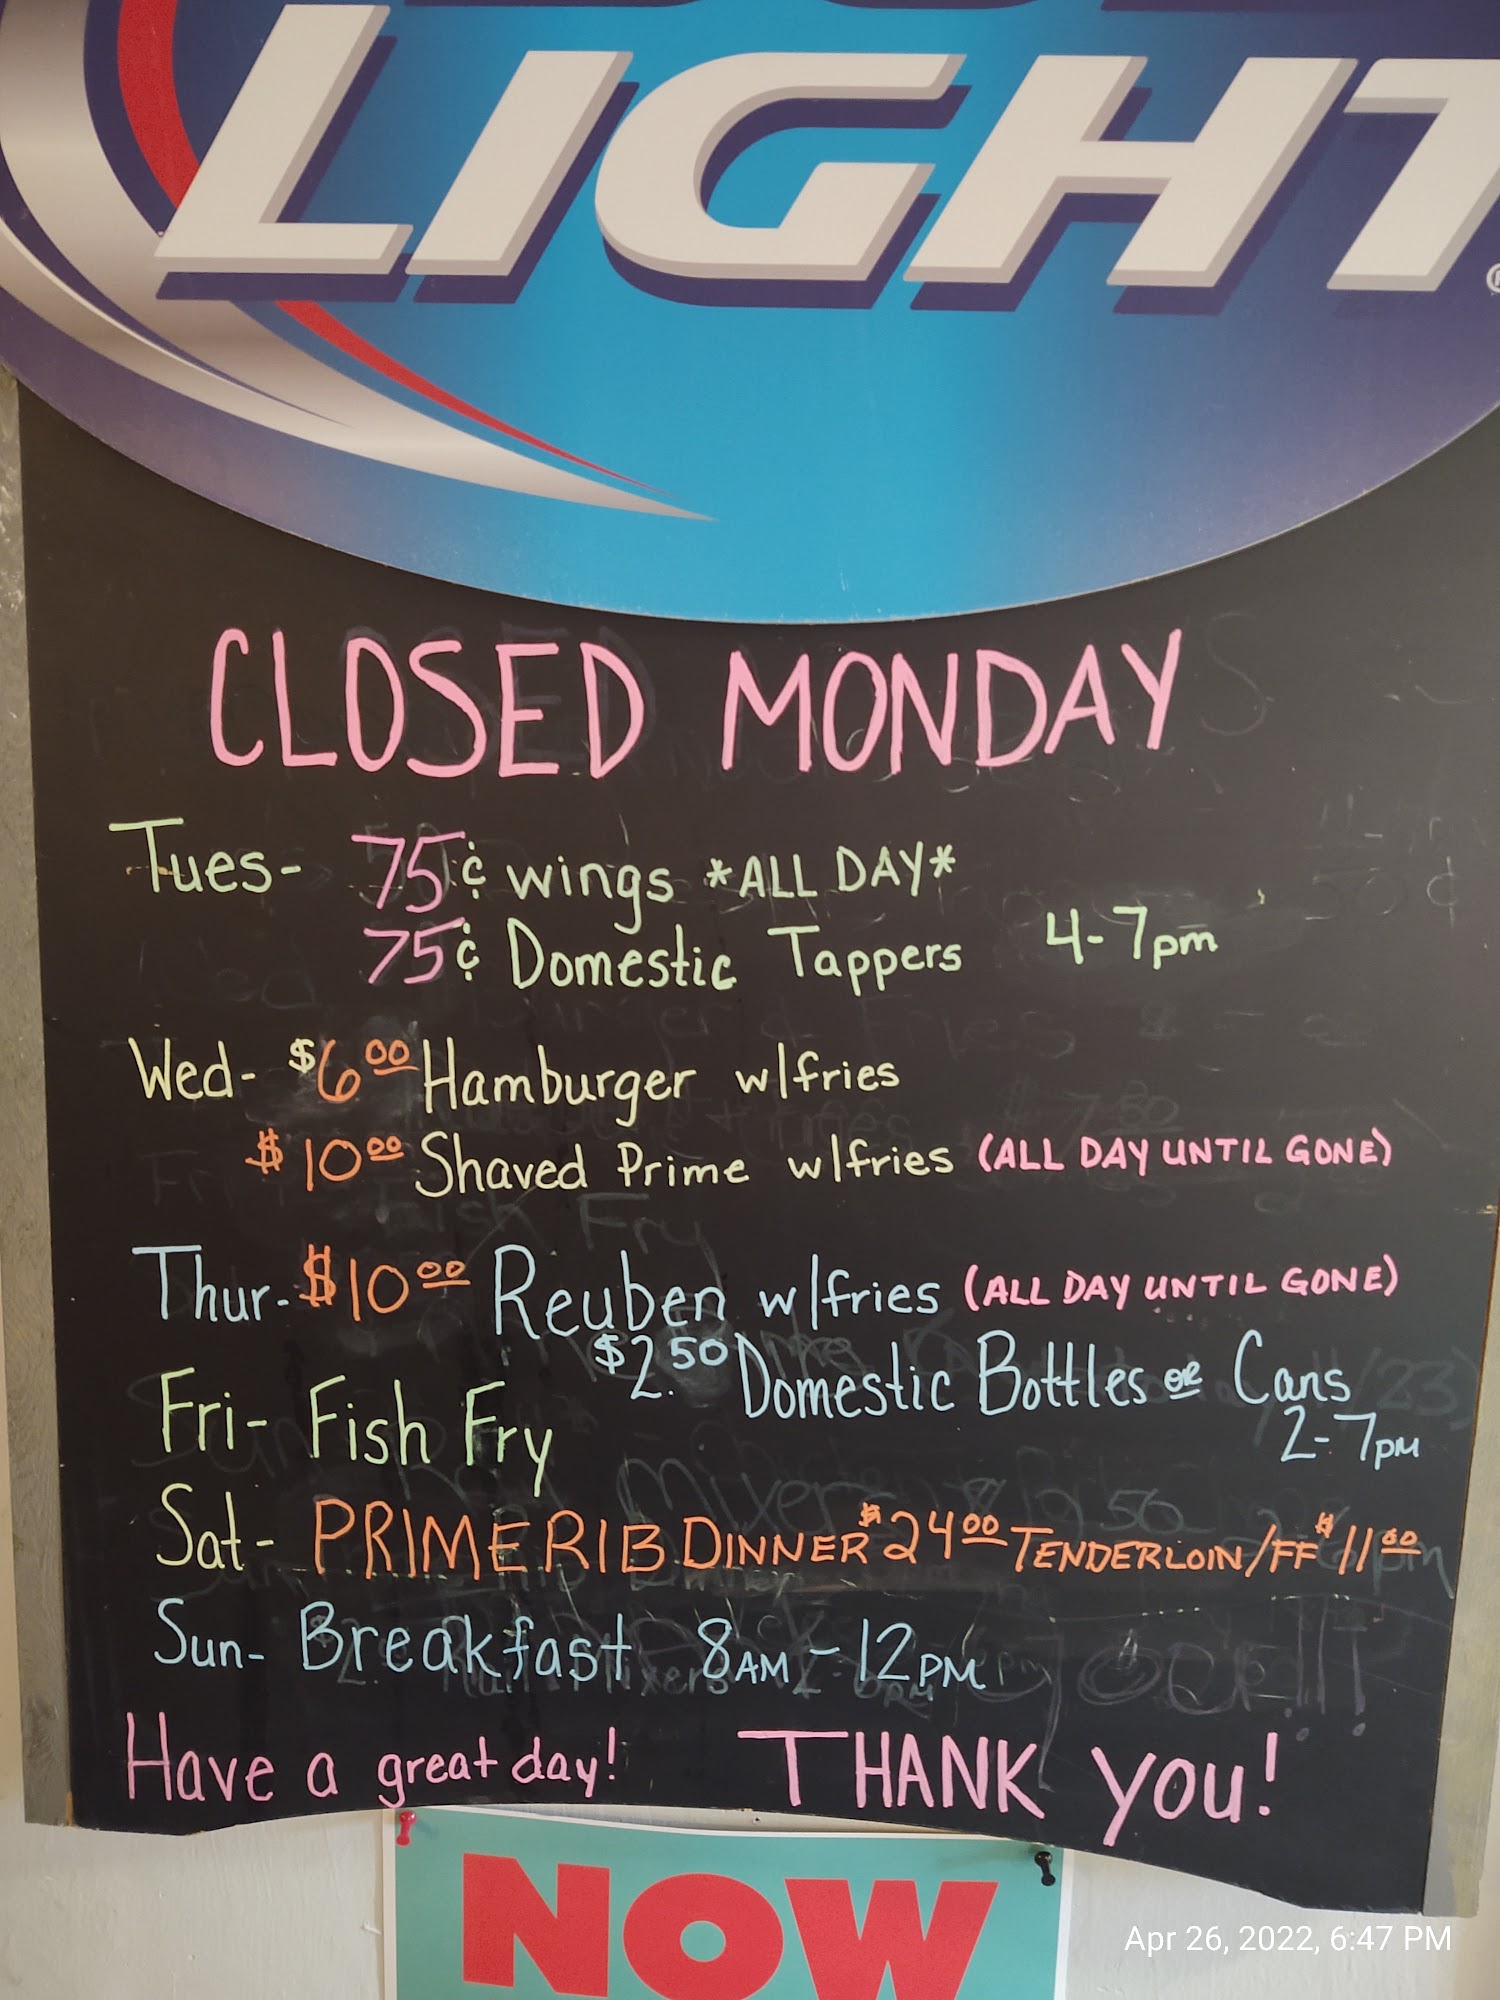 LIGHT
CLOSED MONDAY
Tues- 75¢ wings *ALL DAY*
75¢ Domestic Tappers 4-7pm
Wed- $6.00 Hamburger w/fries
$10.00 Shaved Prime w/fries (ALL DAY UNTIL GONE)
Thur- $10.00 Reuben w/fries (ALL DAY UNTIL GONE)
$2.50 Domestic Bottles or Cans
2-7pm
Fri- Fish Fry
Sat- PRIME RIB DINNER $24.00 TENDERLOIN/FF $11.00
Sun- Breakfast 8AM-12PM
Have a great day! THANK you!
NOW
Apr 26, 2022, 6:47 PM